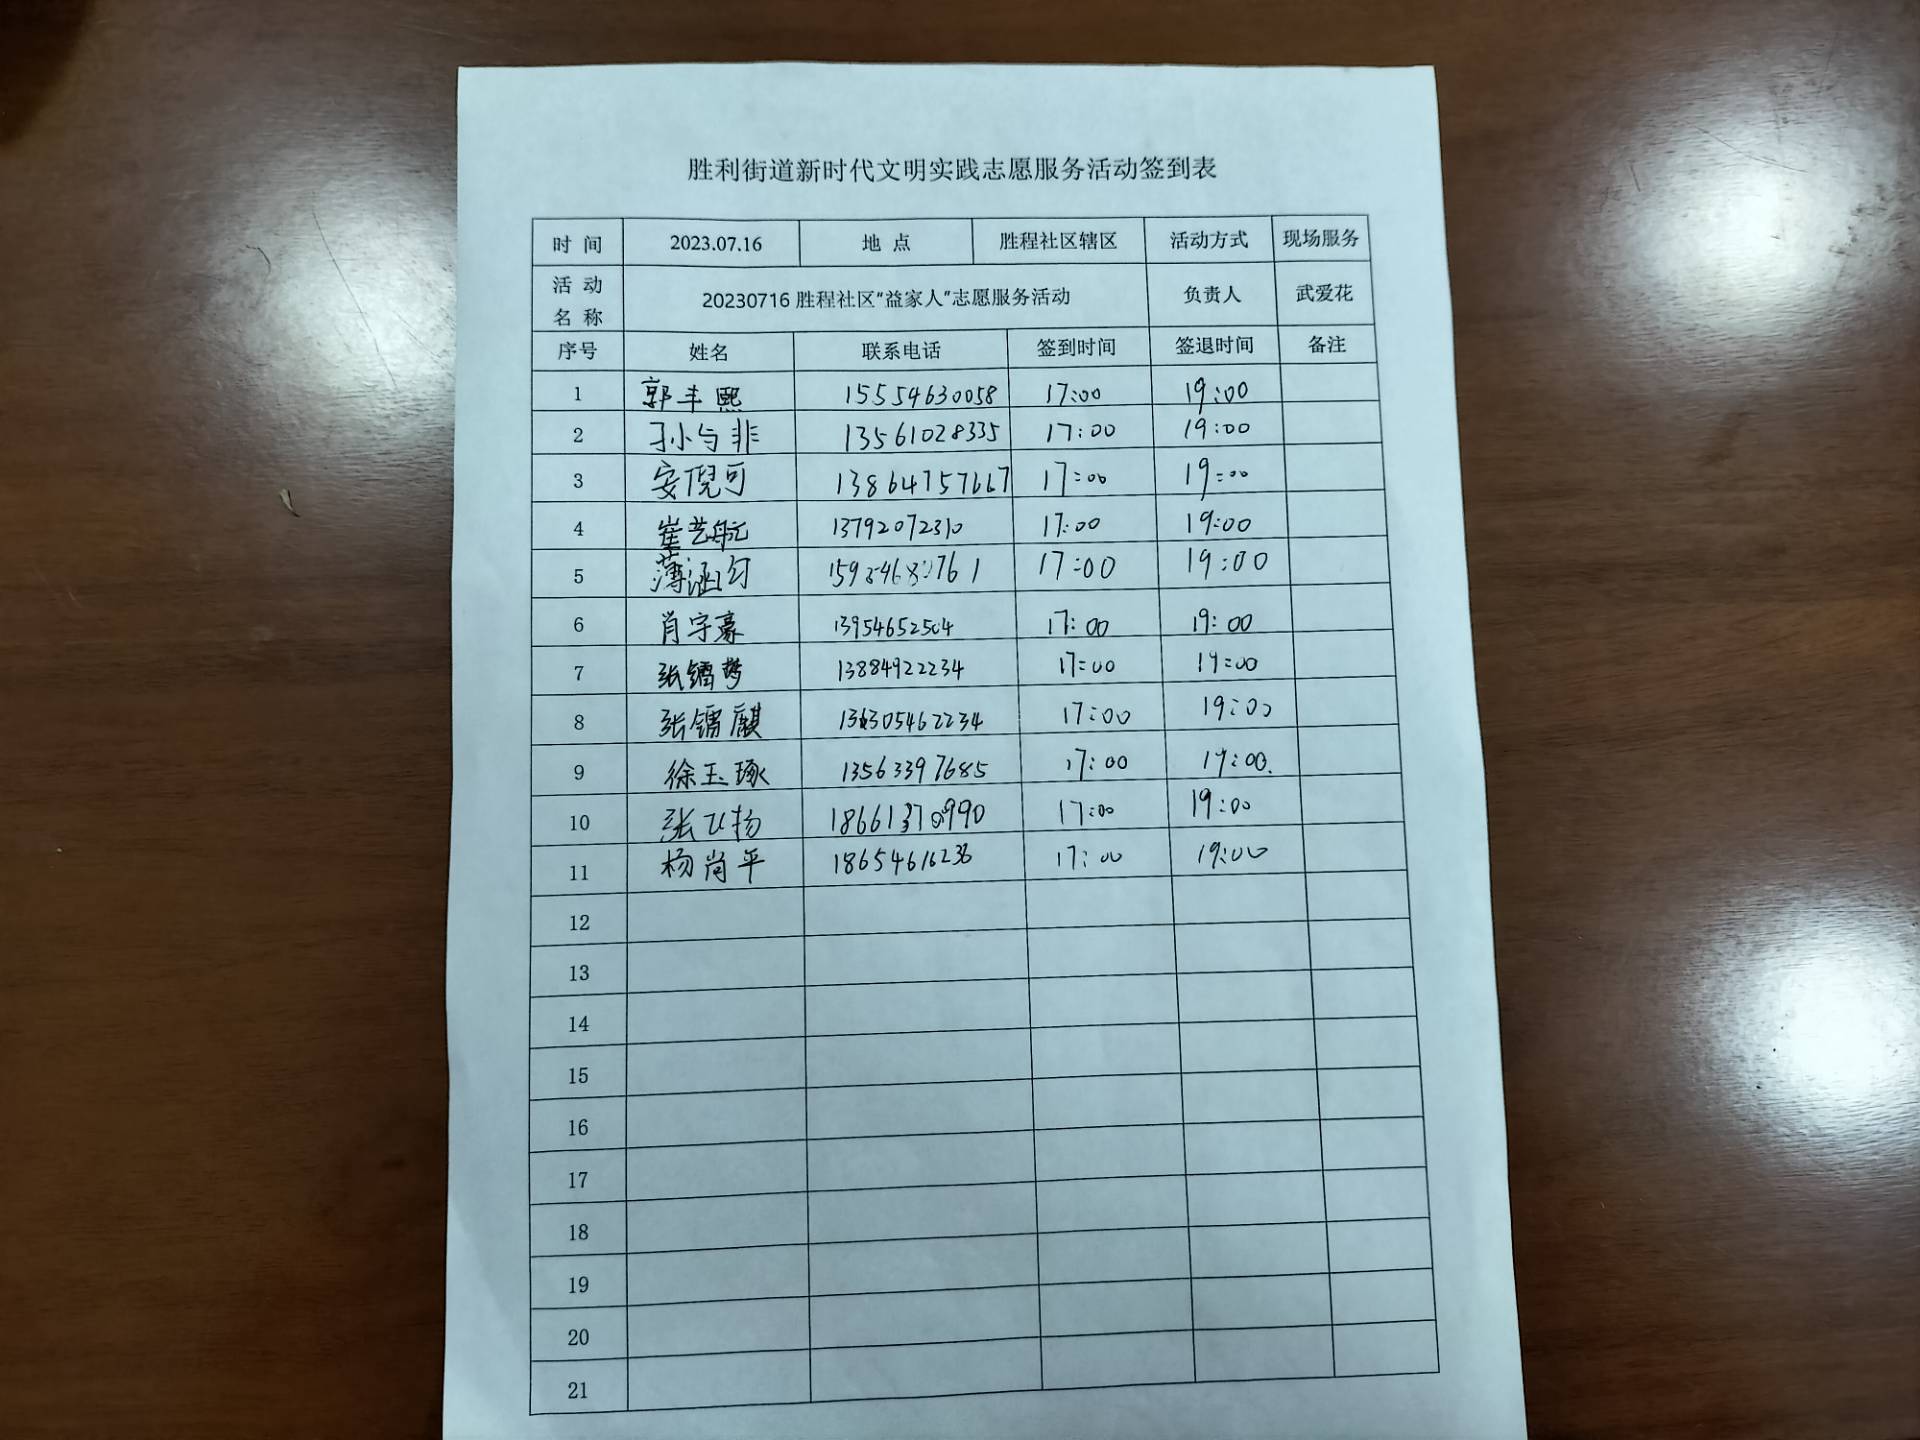 胜利街道新时代文明实践志愿服务活动签到表
时 间 2023.07.16 地 点 胜程社区辖区 活动方式 现场服务
活 动 名 称 20230716 胜程社区"益家人"志愿服务活动 负责人 武爱花
序号 姓名 联系电话 签到时间 签退时间 备注
1 郭丰熙 15554630058 17:00 19:00
2 孙与非 13561028335 17:00 19:00
3 安倪可 13864757667 17:00 19:00
4 崔艺航 13792072310 17:00 19:00
5 薄涵匀 17:00 19:00
6 肖宇豪 13954652504 17:00 19:00
7 张镭梦 13884922234 17:00 19:00
8 张镭麒 17:00 19:00
9 徐玉琢 13563397685 17:00 19:00.
10 张飞扬 17:00 19:00
11 杨尚平 17:00 19:00
12
13
14
15
16
17
18
19
20
21